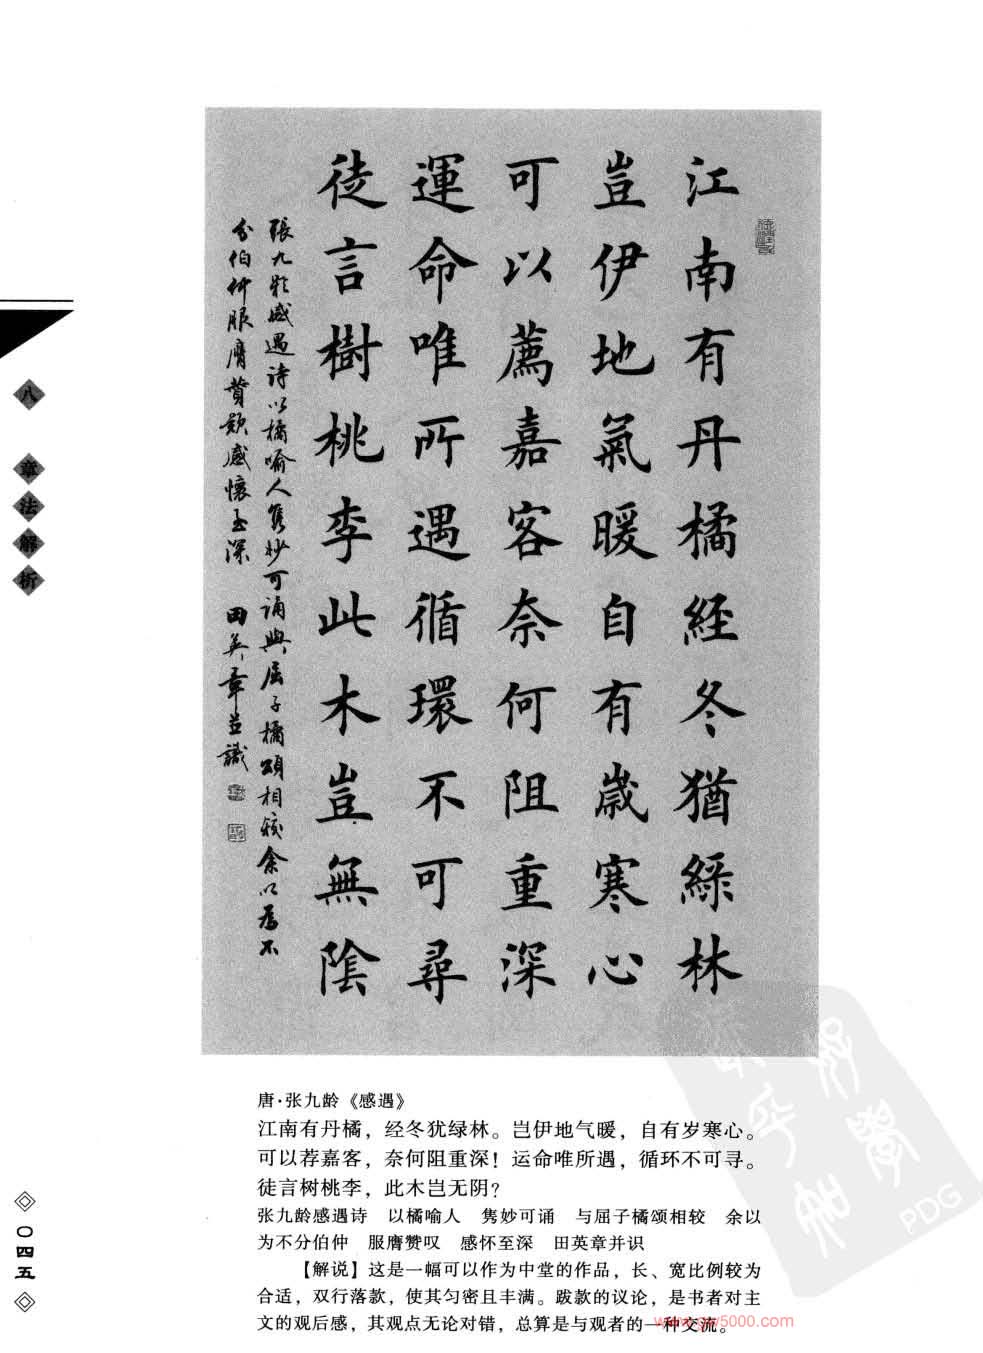 江南有丹橘經冬猶綠林
豈伊地氣暖自有歲寒心
可以薦嘉客奈何阻重深
運命唯所遇循環不可尋
徒言樹桃李此木豈無陰
張九齡感遇诗以橘喻人隽妙可诵與屈子橘頌相較余以為不
分伯仲服膺贊歎感懷至深 田英章並識
八 章法解析
唐·张九龄《感遇》
江南有丹橘，经冬犹绿林。岂伊地气暖，自有岁寒心。
可以荐嘉客，奈何阻重深！运命唯所遇，循环不可寻。
徒言树桃李，此木岂无阴？
张九龄感遇诗 以橘喻人 隽妙可诵 与屈子橘颂相较 余以
为不分伯仲 服膺赞叹 感怀至深 田英章并识
【解说】这是一幅可以作为中堂的作品，长、宽比例较为
合适，双行落款，使其匀密且丰满。跋款的议论，是书者对主
文的观后感，其观点无论对错，总算是与观者的一种交流。
〇四五
PDG